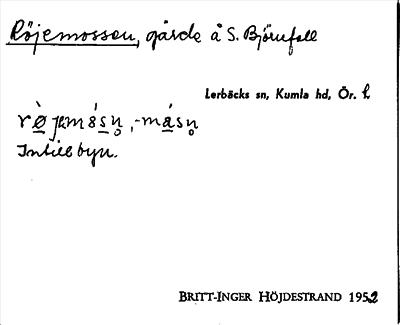 Röjemossen, gärde å S. Björnfall
Lerbäcks sn, Kumla hd, Ör. l.
Intill byn.
BRITT-INGER HÖJDESTRAND 1952